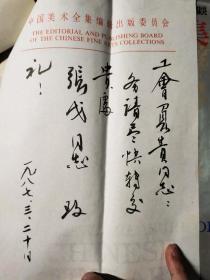 中国美术全集编辑出版委员会
THE EDITORIAL AND PUBLISHING BOARD
OF THE CHINESE FINE ARTS COLLECTIONS
工会负责同志：
务请尽快转交
贵处
张戈同志 致
礼！
一九八七.三.二十日